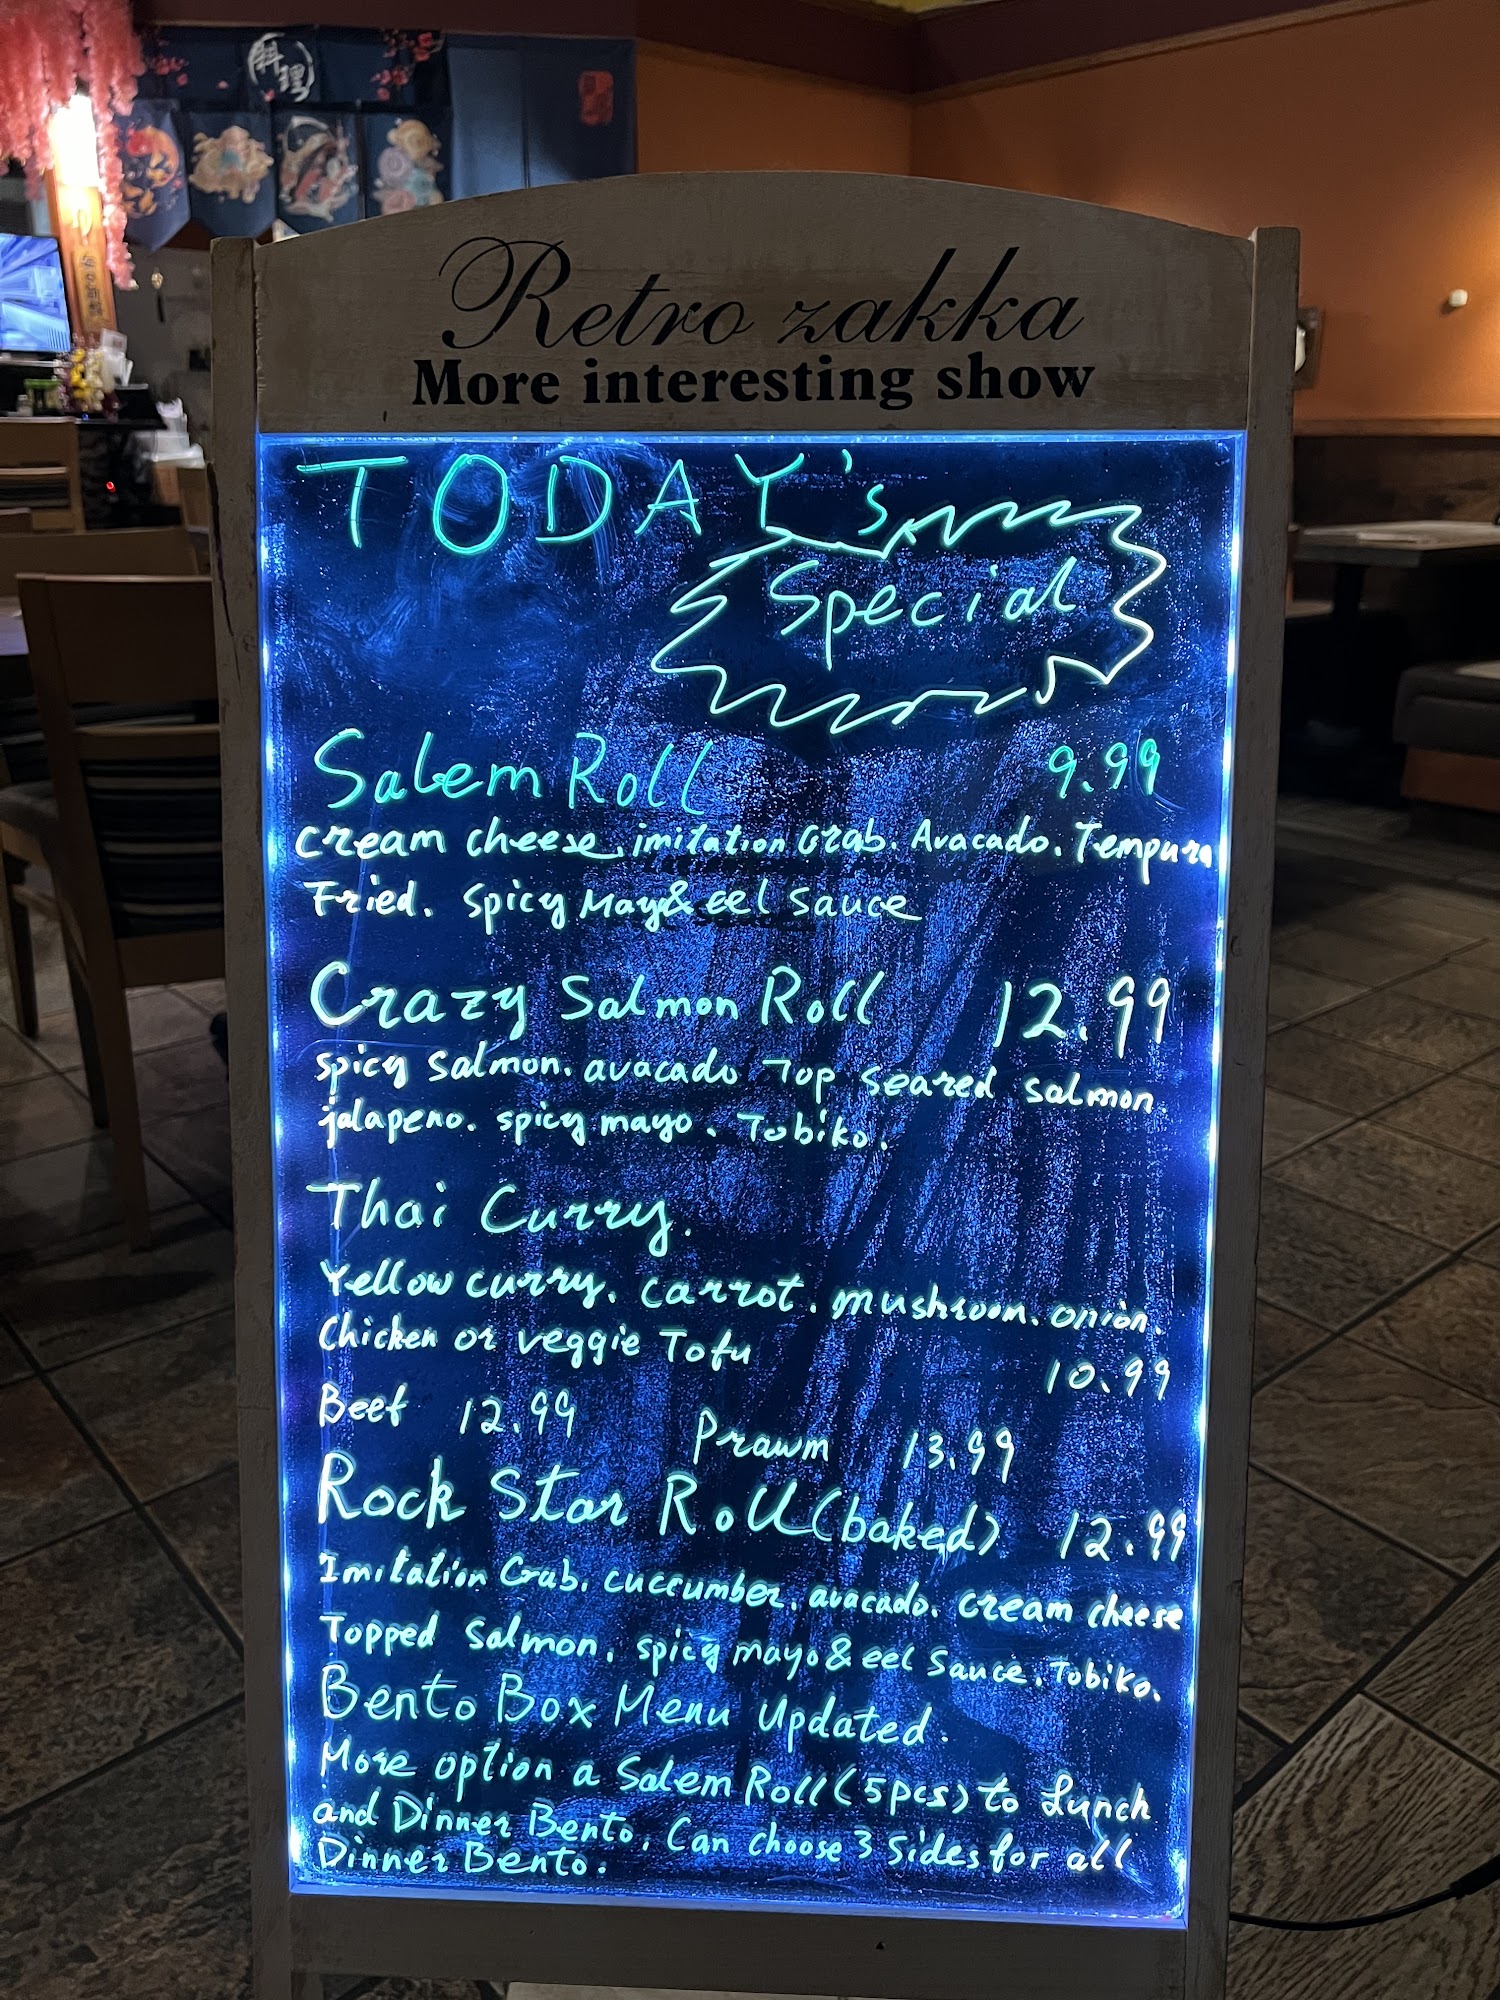 料理
Retro zakka
More interesting show
TODAY's
Special
Salem Roll 9.99
cream cheese, imitation Crab. Avacado. Tempura
Fried. Spicy Mayo & eel Sauce
Crazy Salmon Roll 12.99
spicy salmon. avacado Top seared salmon
jalapeno. spicy mayo. Tobiko.
Thai Curry.
Yellow curry. carrot. mushroom. onion.
Chicken or veggie Tofu 10.99
Beef 12.99 Prawm 13.99
Rock Star Roll (baked) 12.99
Imitation Crab. cuccumber. avacado. cream cheese
Topped salmon. spicy mayo & eel sauce. Tobiko.
Bento Box Menu Updated.
More option a Salem Roll (5pcs) to Lunch
and Dinner Bento. Can choose 3 sides for all
Dinner Bento.